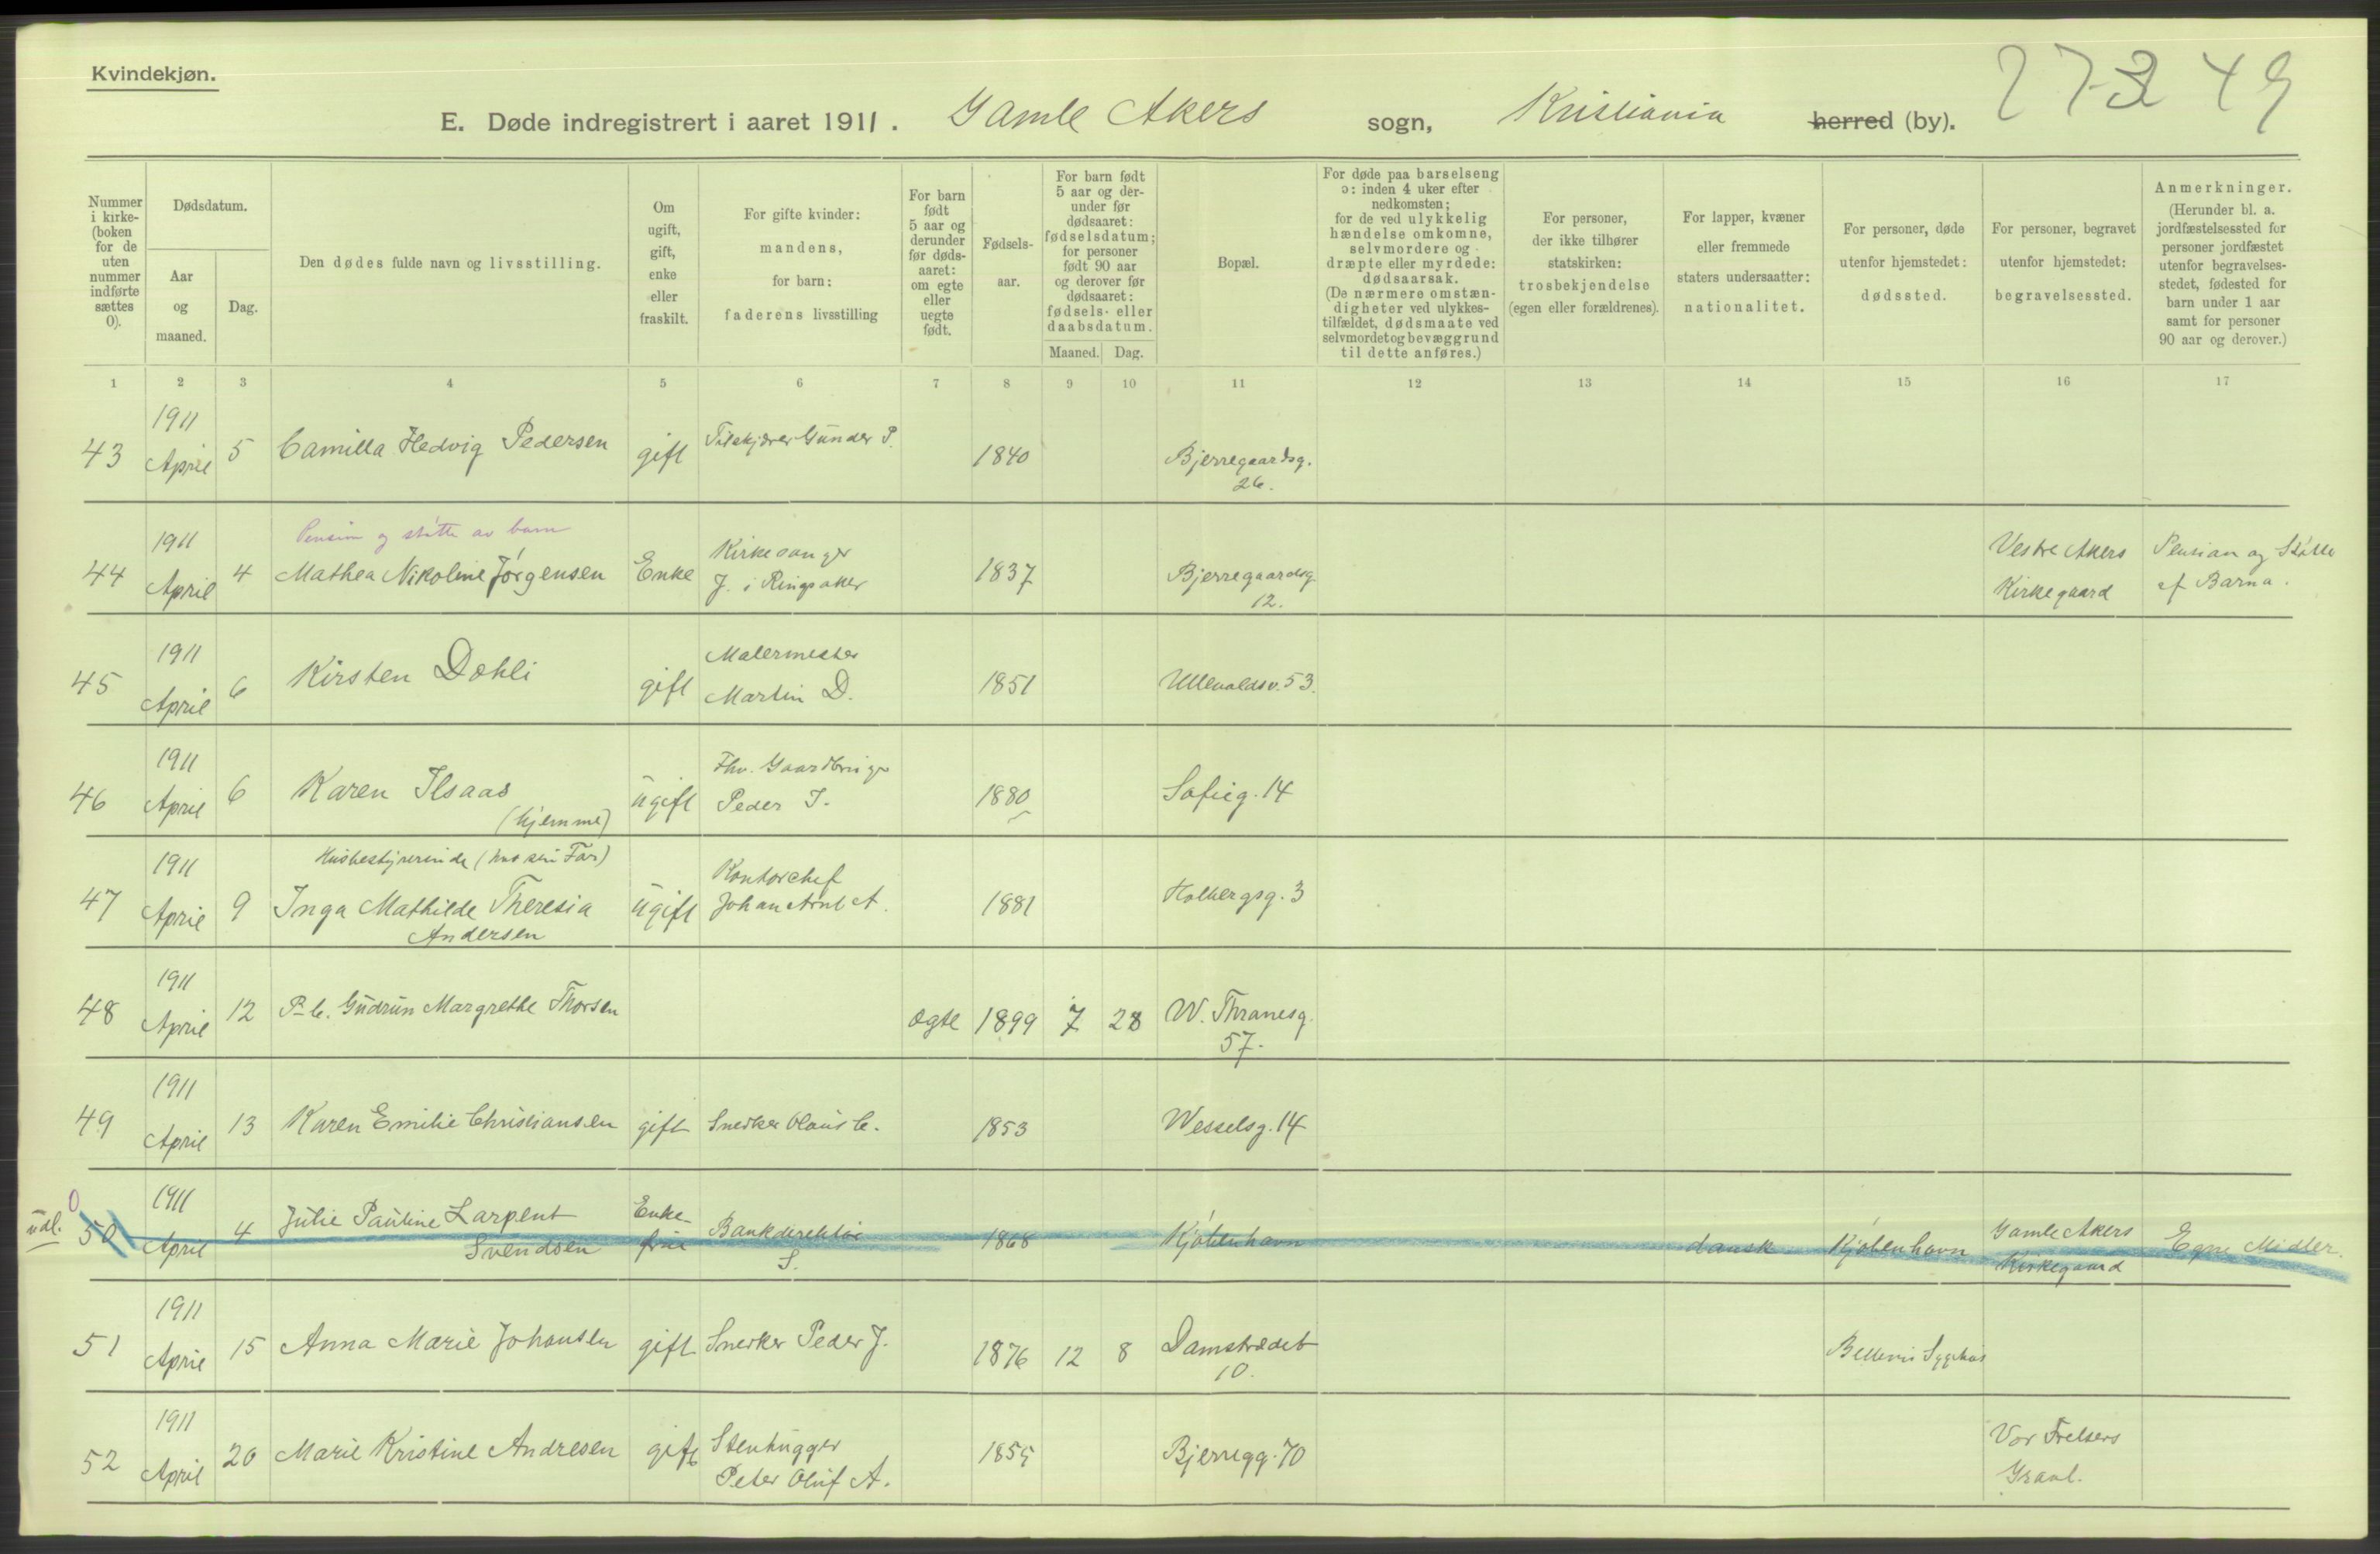 Kvindekjøn.
E. Døde indregistrert i aaret 1911. Gamle Akers sogn, Kristiania herred (by).
Nummer i kirke-(boken for de uten nummer indførte sættes 0).
Dødsdatum.
Aar og maaned.
Dag.
Den dødes fulde navn og livsstilling.
Om ugift, gift, enke eller fraskilt.
For gifte kvinder: mandens, for barn: faderens livsstilling
For barn født 5 aar og derunder før døds-aaret: om egte eller uegte født.
Fødsels-aar.
For barn født 5 aar og der-under før dødsaaret: fødselsdatum; for personer født 90 aar og derover før dødsaaret: fødsels- eller daabsdatum.
Maaned. Dag.
Bopæl.
For døde paa barselseng ɔ: inden 4 uker efter nedkomsten; for de ved ulykkelig hændelse omkomne, selvmordere og dræpte eller myrdede: dødsaarsak. (De nærmere omstæn-digheter ved ulykkes-tilfældet, dødsmaate ved selvmordet og bevæggrund til dette anføres.)
For personer, der ikke tilhører statskirken: trosbekjendelse (egen eller forældrenes).
For lapper, kvæner eller fremmede staters undersaatter: nationalitet.
For personer, døde utenfor hjemstedet: dødssted.
For personer, begravet utenfor hjemstedet: begravelsessted.
Anmerkninger. (Herunder bl. a. jordfæstelsessted for personer jordfæstet utenfor begravelses-stedet, fødested for barn under 1 aar samt for personer 90 aar og derover.)
1 2 3 4 5 6 7 8 9 10 11 12 13 14 15 16 17
1911
43 April 5 Camilla Hedvig Pedersen gift Gunder P. 1840 Bjerregaardsg.
26.
Pension og støtte av barn
1911 Kirkesanger Vestre Akers Pension og Støtte
44 April 4 Mathea Nikoline Jörgensen Enke J. i Ringsaker 1837 Bjerregaardsg. Kirkegaard af Barna.
12.
1911 Malermester
45 April 6 Kirsten Dæhli gift Martin D. 1851 Ullevoldsv. 53.
1911 Fhv. Gaardbruger
46 April 6 Karen Ilsaas ugift Peder I. 1880 Sofieg. 14
(hjemme)
1911 Husbestyrerinde (hos sin Far) Kontorchef
47 April 9 Inga Mathilde Theresia ugift Johan Arnt A. 1881 Holbergsg. 3
Andersen
1911
48 April 12 P. b. Gudrun Margrethe Thorsen ægte 1899 7 28 W. Thranesg.
57.
1911
49 April 13 Karen Emilie Christiansen gift Snedker Olaus C. 1853 Wesselsg. 14
0
1911 Julie Pauline Larpent Enke- Gamle Akers
udl. 50 April 4 Svendsen frue Bankdirektör S. 1868 Kjöbenhavn dansk Kjöbenhavn Kirkegaard Egne Midler.
1911
51 April 15 Anna Marie Johansen gift Snedker Peder J. 1876 12 8 Damstrædet Bellevue Sygehus
10.
1911 Stenhugger Vor Frelsers
52 April 20 Marie Kristine Andresen gift Peter Oluf A. 1855 Bjerregg. 70 Gravl.